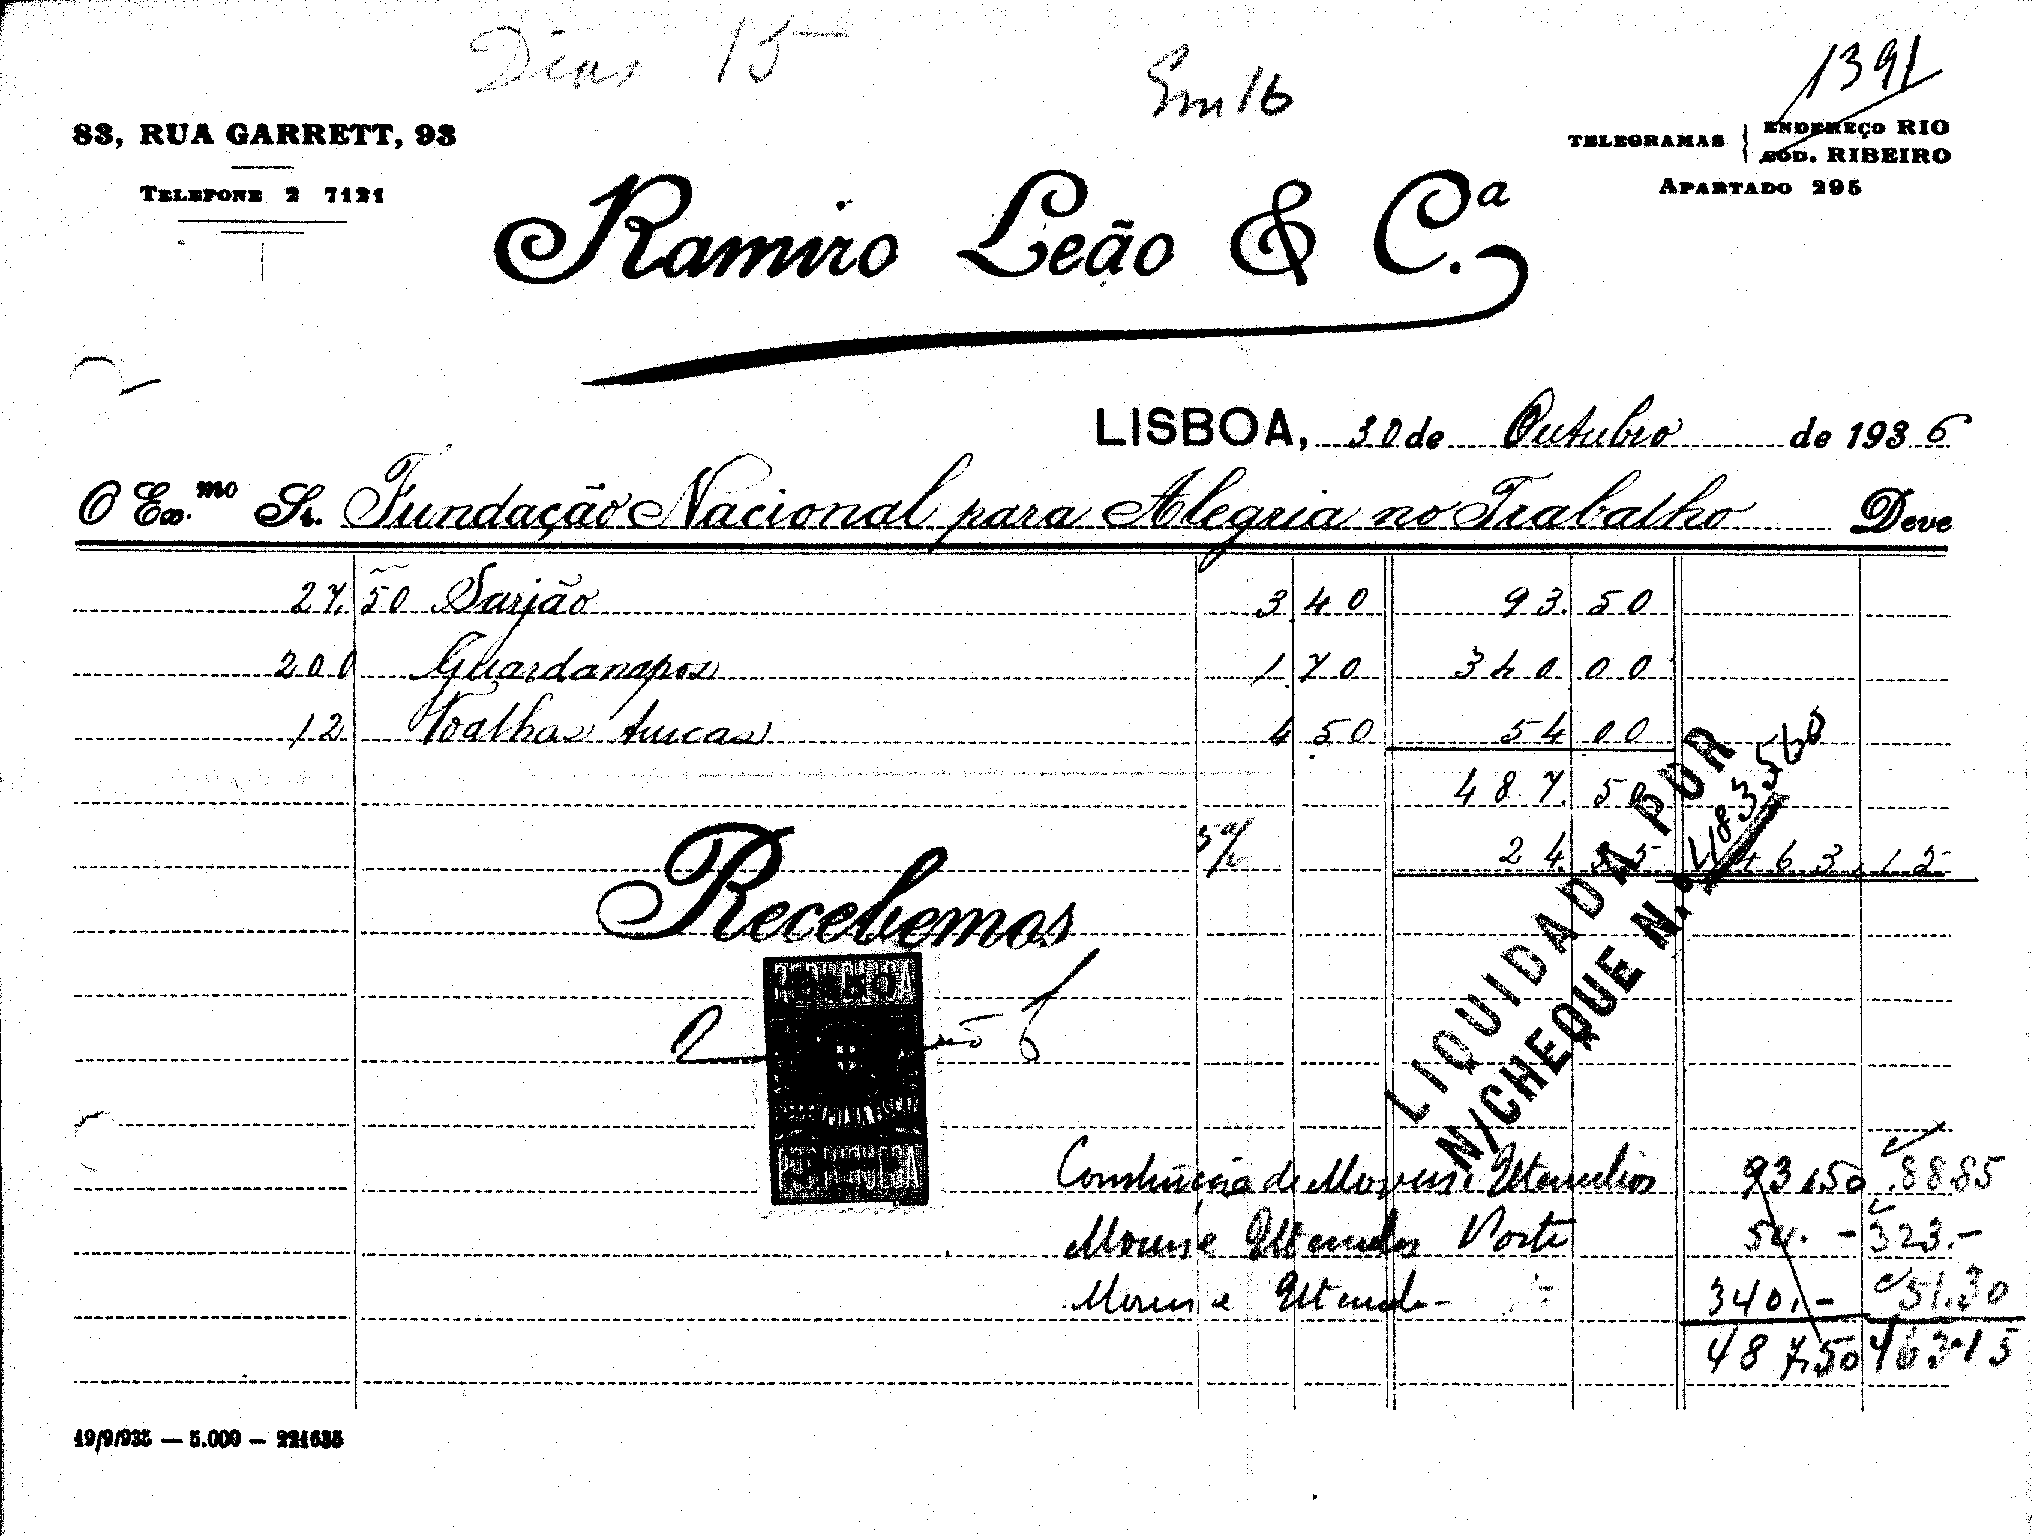 Dias 15
Em 16
1391
83, RUA GARRETT, 93
TELEFONE 2 7121
TELEGRAMAS { ENDEREÇO RIO
COD. RIBEIRO
APARTADO 295
Ramiro Leão & Cª.
LISBOA, 30 de Outubro de 1936
O Exmo. Sr. Fundação Nacional para Alegria no Trabalho Deve
27,50 Sarjão 3.40 93.50
200 Guardanapos 1.70 340 00
12 Toalhas turcas 4 50 54 00
487.50
5% 24.35 463.15
Recebemos
LIQUIDADA POR
N/CHEQUE N.º 483560
Moveis e Utensilios 93,50 88.85
Moveis e Utensilios Porto 54.- 323.-
Moveis e 340.- 51.30
487,50 463.15
19/9/935 — 5.000 — 221635